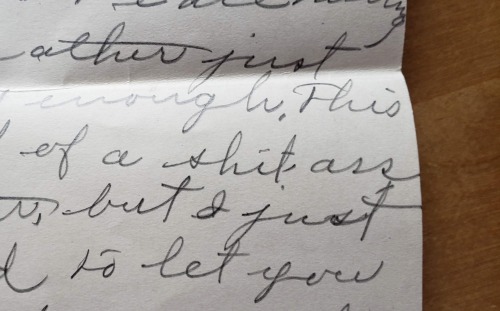 ather just
enough. This
of a shit ass
but I just
to let you